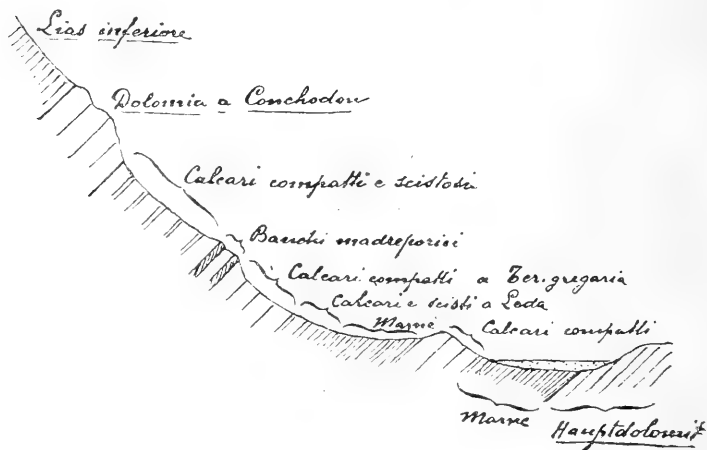 Lias inferiore
Dolomia a Conchodon
Calcari compatti e scistosi
Banchi madreporici
Calcari compatti a Ter. gregaria
Calcari e scisti a Leda
Marne
Calcari compatti
Marne
Hauptdolomit